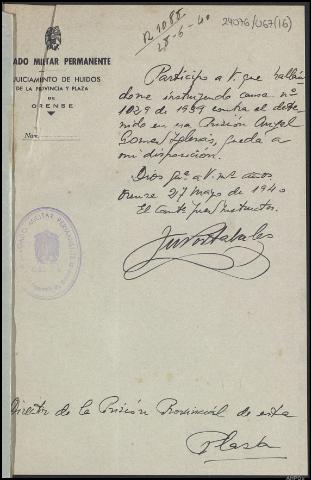 R 1088
28-6-40
24076/U67(16)
ADO MILITAR PERMANENTE
JUICIAMIENTO DE HUIDOS
DE LA PROVINCIA Y PLAZA
DE
ORENSE
Núm.
Participo a V. que hallán
dome instruyendo causa nº
1029 de 1939 contra el dete
nido en esa Prisión Angel
Gomez Iglesias, queda a
mi disposición.
Dios gue a V. ms años
Orense 27 Mayo de 1940
El Comte Juez Instructor.
Director de la Prisión Provincial de esta
Plaza